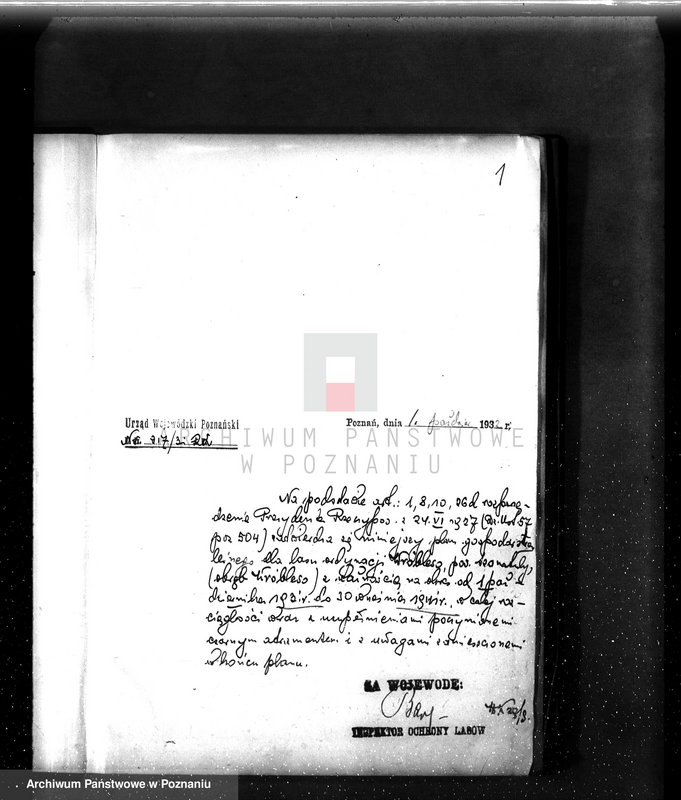 1
Urząd Wojewódzki Poznański
Poznań, dnia 1. 193 r.
ARCHIWUM PAŃSTWOWE
W POZNANIU
Na podstawie art.: 1, 8, 10, 26 d rozporzą-
dzenia Prezydenta Rzeczypos. z 24. VI 1927
poz 504) zatwierdza się niniejszy plan gospodarstwa
leśnego dla lasu ordynacji Wróblewo, pow. szamotuły,
(obręb Wróblewo) z ważnością na okres od 1 paź-
dziernika 193 r. do 30 września 1941 r. w całej roz-
ciągłości wraz z uzupełnieniami poczynionemi
czarnym atramentem i z uwagami zamieszczonemi
w końcu planu.
ZA WOJEWODĘ:
INSPEKTOR OCHRONY LASÓW
Archiwum Państwowe w Poznaniu